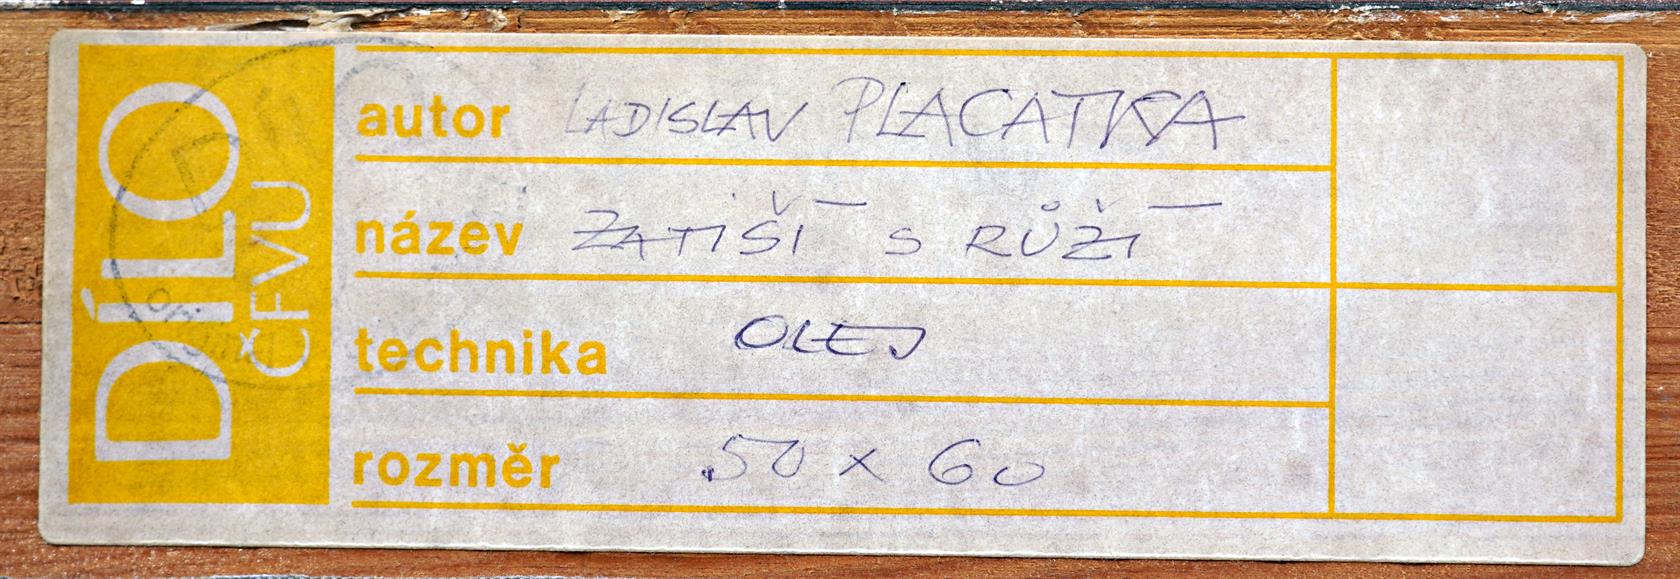 DÍLO
ČFVU
autor LADISLAV PLACATKA
název ZÁTIŠÍ S RŮŽÍ
technika OLEJ
rozměr 50 x 60